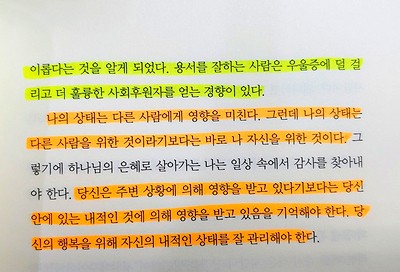 이롭다는 것을 알게 되었다. 용서를 잘하는 사람은 우울증에 덜 걸
리고 더 훌륭한 사회후원자를 얻는 경향이 있다.
나의 상태는 다른 사람에게 영향을 미친다. 그런데 나의 상태는
다른 사람을 위한 것이라기보다는 바로 나 자신을 위한 것이다. 그
렇기에 하나님의 은혜로 살아가는 나는 일상 속에서 감사를 찾아내
야 한다. 당신은 주변 상황에 의해 영향을 받고 있다기보다는 당신
안에 있는 내적인 것에 의해 영향을 받고 있음을 기억해야 한다. 당
신의 행복을 위해 자신의 내적인 상태를 잘 관리해야 한다.